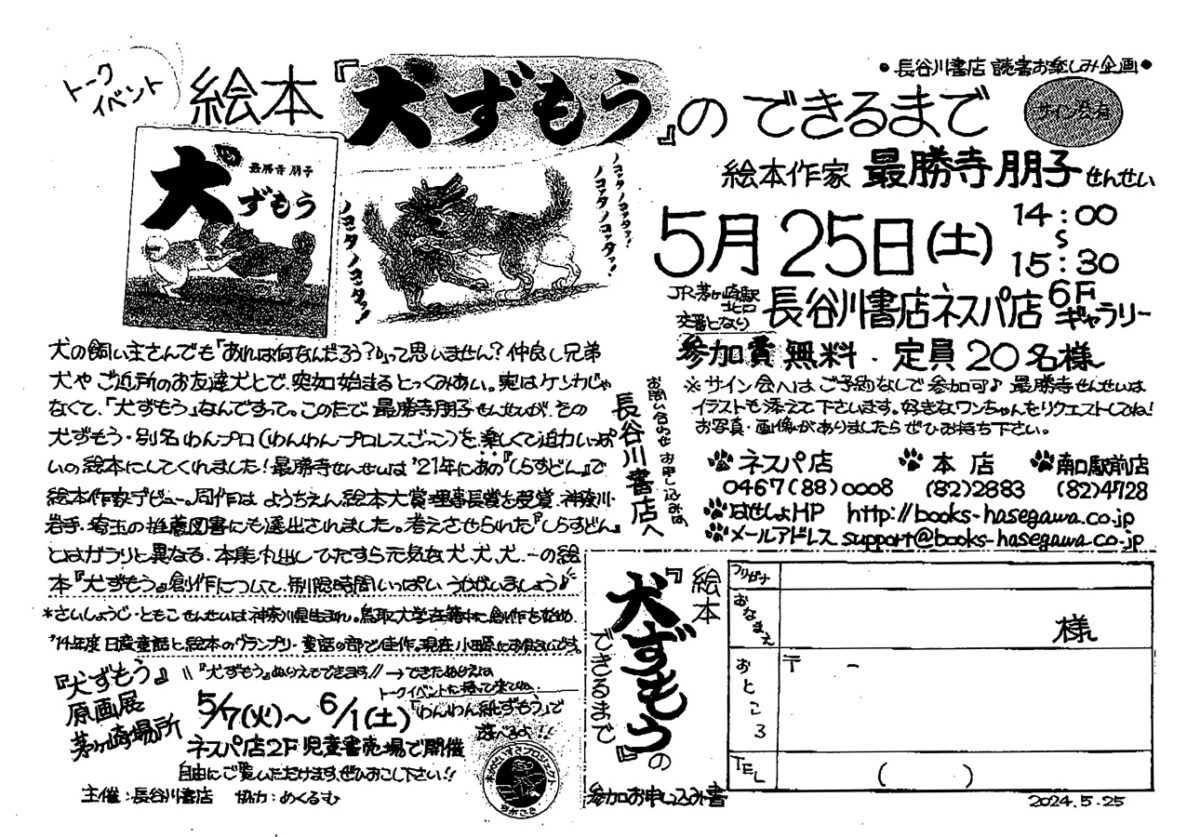 トーク
イベント
絵本『犬ずもう』のできるまで
●長谷川書店 読書お楽しみ企画●
サイン会有
絵本作家 最勝寺朋子せんせい
5月25日(土) 14:00〜15:30
JR茅ヶ崎駅
北口
交番となり
長谷川書店ネスパ店 6Fギャラリー
参加費 無料・定員20名様
※サイン会へはご予約なしで参加可♪ 最勝寺せんせいは
イラストも添えて下さいます。好きなワンちゃんをリクエストしてね!
お写真・画像がありましたらぜひお持ち下さい。
犬ずもう
最勝寺 朋子
ノコッタノコッタッ!
ノコッタノコッタッ!
ノコッタノコッタッ!
犬の飼い主さんでも「あれは何なんだろう?」って思いません?仲良し兄弟
犬やご近所のお友達犬とで、突如始まるとっくみあい。実はケンカじゃ
なくて、「犬ずもう」なんですって。このたび最勝寺朋子せんせいが、その
犬ずもう・別名わんプロ(わんわんプロレスごっこ)を、楽しくて迫力いっぱ
いの絵本にしてくれました!最勝寺せんせいは'21年にあの『しらすどん』で
絵本作家デビュー。同作はようちえん絵本大賞理事長賞を受賞、神奈川・
岩手・埼玉の推薦図書にも選出されました。考えさせられた『しらすどん』
とはガラリと異なる、本能丸出しでひたすら元気な犬、犬、犬…の絵
本『犬ずもう』。創作について、制限時間いっぱいうかがいましょう♪
*さいしょうじ・ともこせんせいは神奈川県生まれ。鳥取大学在籍中に創作を始め、
'14年度日産童話と絵本のグランプリ・童話の部で佳作。現在小田原にお住まいです。
お問い合わせ・お申し込みは、
長谷川書店へ
ネスパ店 本店 南口駅前店
0467(88)0008 (82)2883 (82)4728
はせしょHP http://books-hasegawa.co.jp
メールアドレス support@books-hasegawa.co.jp
『犬ずもう』
原画展
茅ヶ崎場所
\\『犬ずもう』ぬりえできます!!//→できたぬりえは、
トークイベントに持って来てね。
5/7(火)〜6/1(土)
「わんわん紙ずもう」で
遊べるよ!!
ネスパ店2F 児童書売場で開催
自由にご覧いただけます、ぜひおこし下さい!!
主催:長谷川書店 協力:めくるむ
絵本
『犬ずもう』の
できるまで
参加お申し込み書
フリガナ
おなまえ
様
おところ
〒 -
TEL
( )
2024.5.25